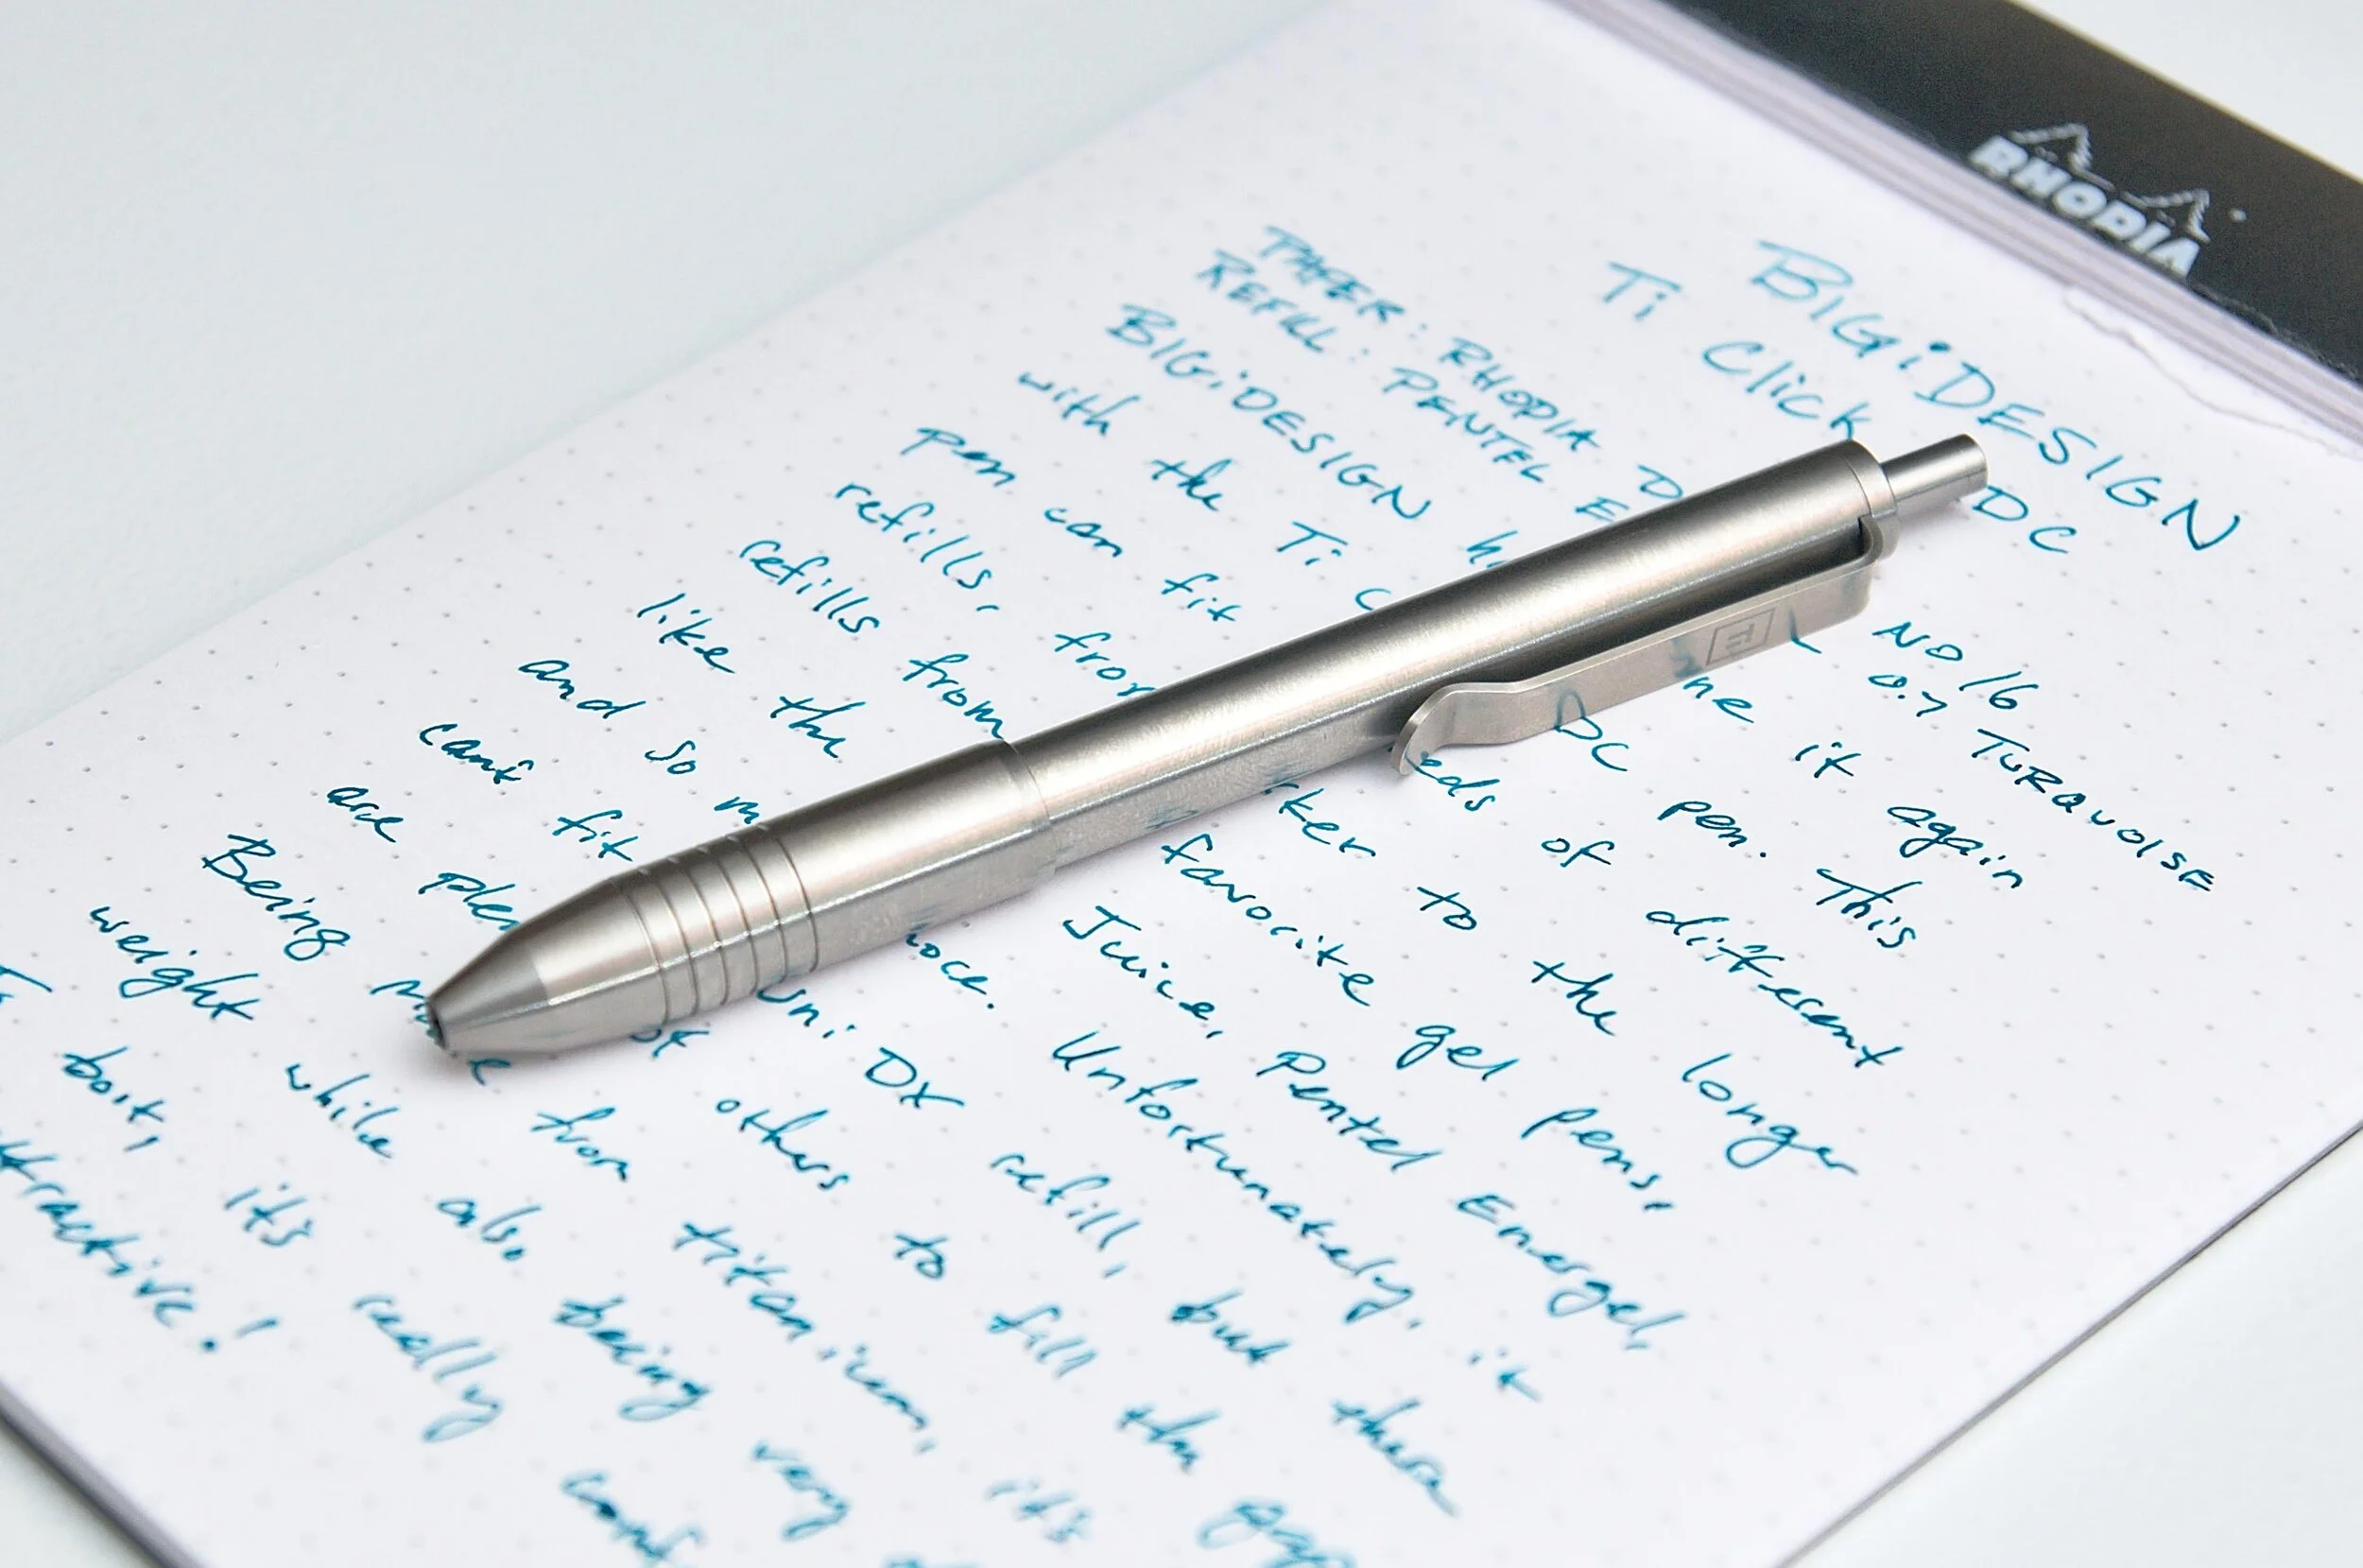 RHODIA
BIGiDESIGN
Ti Click DC
PAPER: RHODIA D No 16
REFILL: PENTEL E 0.7 TURQUOISE
BIGiDESIGN h ne it again
with the Ti C DC pen. This
pen can fit eds of different
refills, from ker to the longer
refills from favorite gel pens,
like the Juice, Pentel Energel,
and so m Unfortunately, it
cant fit uni. DX refill, but there
are plen others to fill the gap
Being from titanium, it's
weight while also being very
boot, it's really
ttractive!
Ti